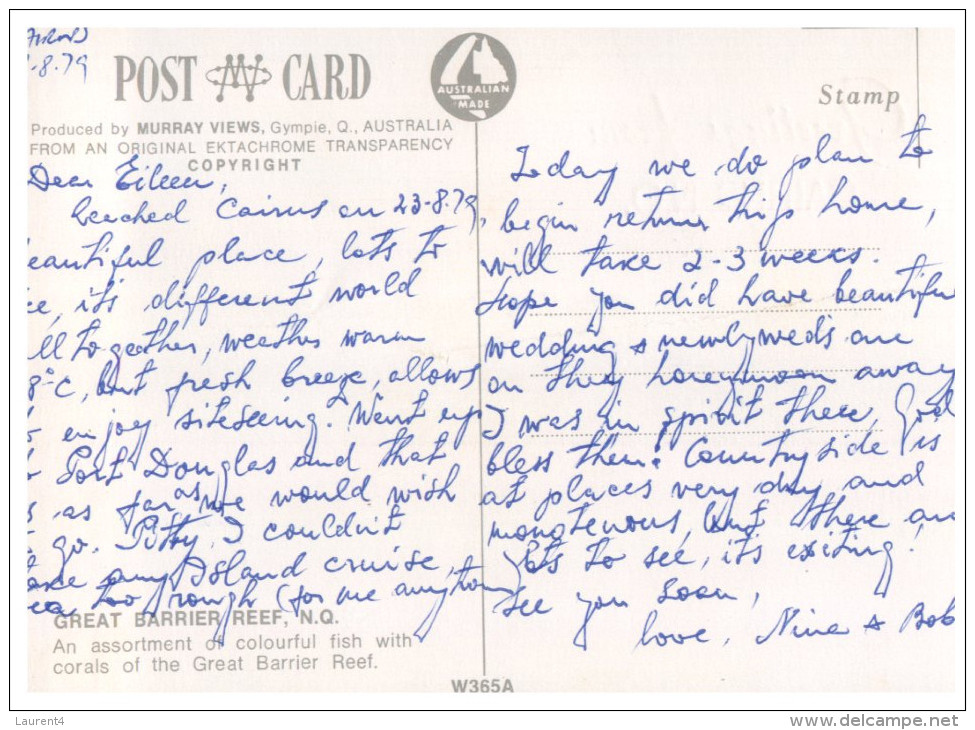 -8.79
POST CARD
AUSTRALIAN
MADE
Stamp
Produced by MURRAY VIEWS, Gympie, Q., AUSTRALIA
FROM AN ORIGINAL EKTACHROME TRANSPARENCY
COPYRIGHT
Dear Eileen,
Reached Cairns on 23-8.79,
eautiful place, lots to
ee, it's different world
ll to geather, weather warm
8°C, but fresh breeze, allows
enjoy siteseing. Went up
Port Douglas and that
s as far as we would wish
go. Pitty, I couldn't
any Island cruise,
ea too rough (for me anyhow)
Today we do plan to
begin return trip home,
will take 2-3 weeks.
Hope you did have beautiful
wedding & newlyweds are
on they honeymoon away
I was in spirit there, God
bless them. Countryside is
at places very dry and
mongtenous, but there are
lots to see, it's exiting.
See you soon,
love, Nina & Bob
GREAT BARRIER REEF, N.Q.
An assortment of colourful fish with
corals of the Great Barrier Reef.
W365A
Laurent4
delcampe.net